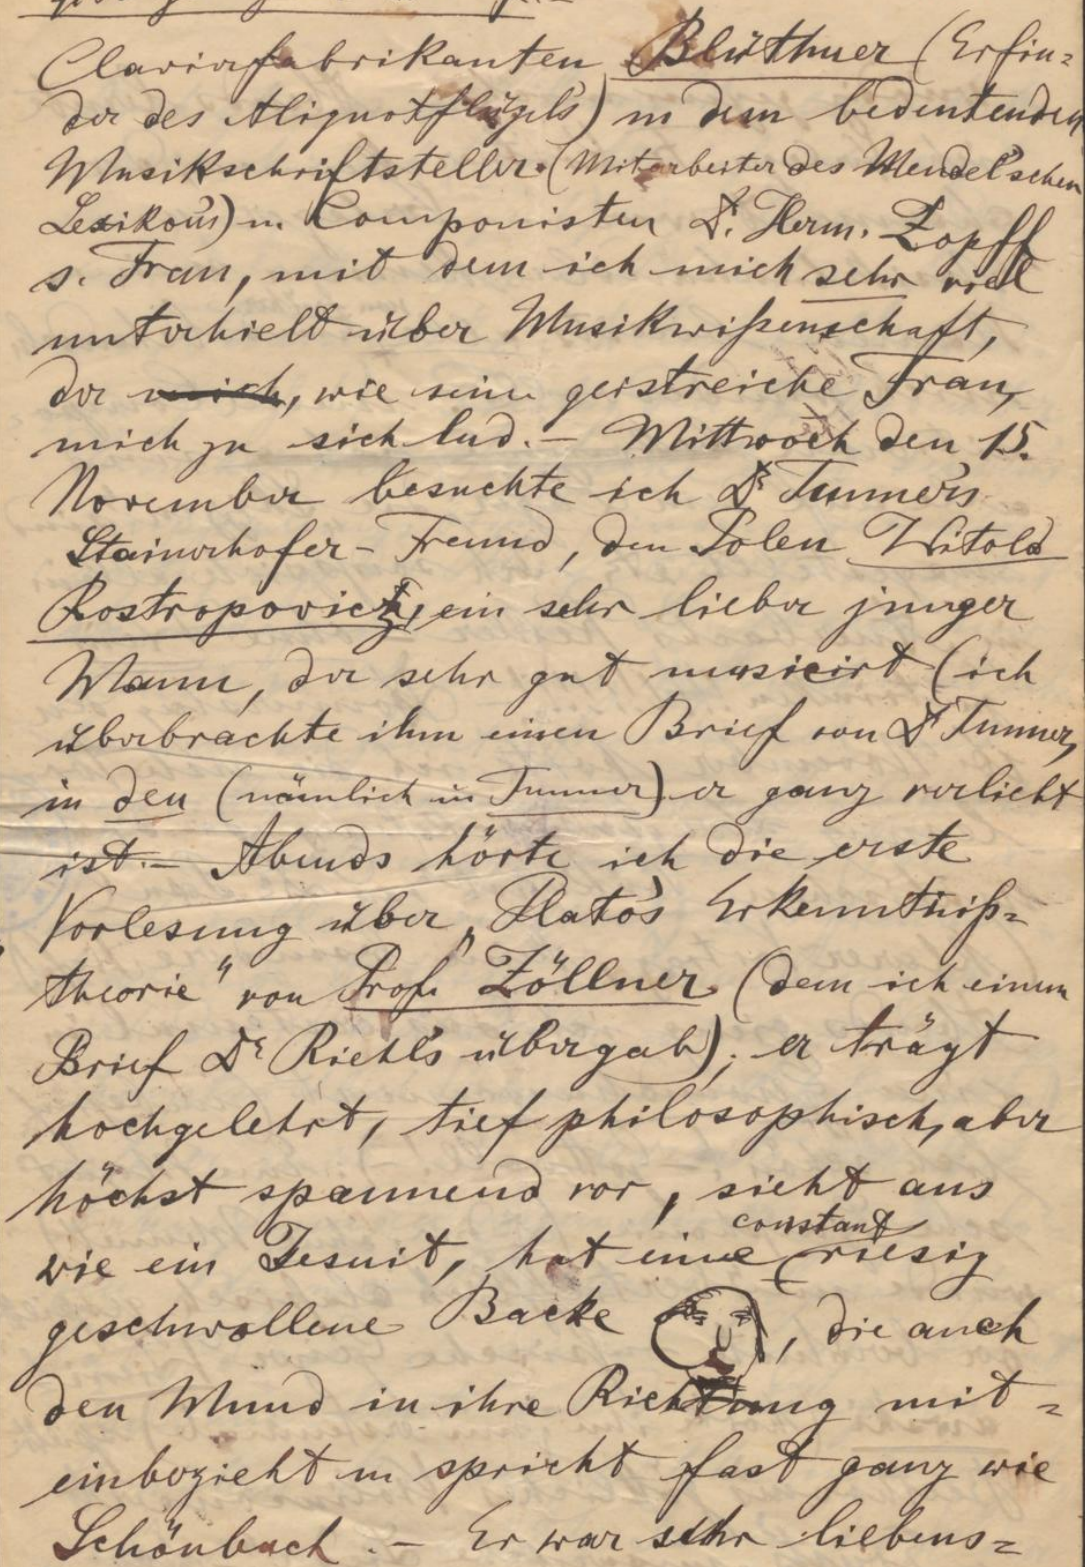 Clavierfabrikanten Blüthner (Erfin=
der des Aliquotflügels) u dem bedeutenden
Musikschriftsteller (Mitarbeiter des Mendel'schen
Lexikons) u. Componisten Dr. Herm. Zopff
s. Frau, mit dem ich mich sehr viel
unterhielt über Musikwißenschaft,
der mich, wie seine geistreiche Frau,
mich zu sich lud. – Mittwoch den 15.
November besuchte ich Dr Tunner's
Stainerhofer-Freund, den Polen Witold
Rostropovicz, ein sehr lieber junger
Mann, der sehr gut musicirt (ich
überbrachte ihm einen Brief von Dr Tunner,
in den (nämlich in Tunner) er ganz verliebt
ist. – Abends hörte ich die erste
Vorlesung über „Plato's Erkenntniß=
theorie" von Prof. Zöllner (dem ich einen
Brief Dr Riehl's übergab); er trägt
hochgelehrt, tief philosophisch, aber
höchst spannend vor, sieht aus
constant
wie ein Jesuit, hat eine riesig
geschwollene Backe , die auch
den Mund in ihre Richtung mit=
einbezieht u spricht fast ganz wie
Schönbach. – Er war sehr liebens=